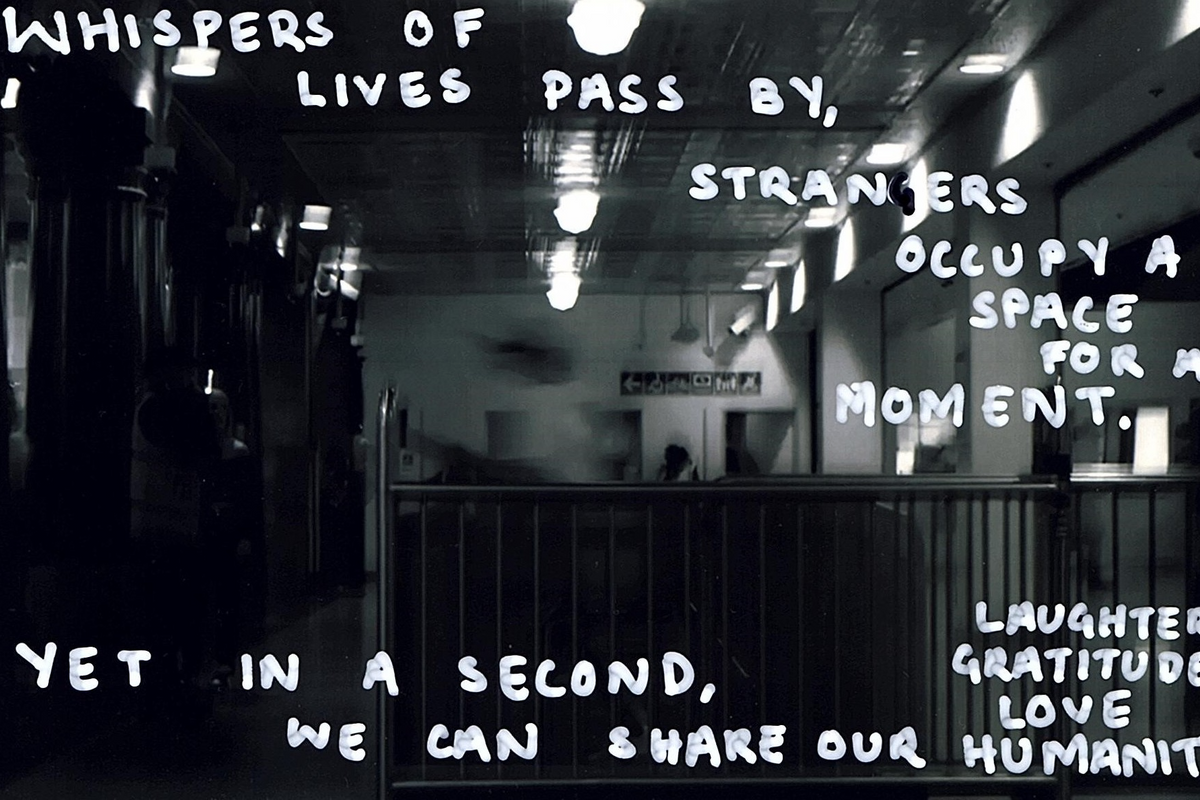 WHISPERS OF
LIVES PASS BY,
STRANGERS
OCCUPY A
SPACE
FOR A
MOMENT.
YET IN A SECOND,
WE CAN SHARE OUR
LAUGHTER
GRATITUDE
LOVE
HUMANIT